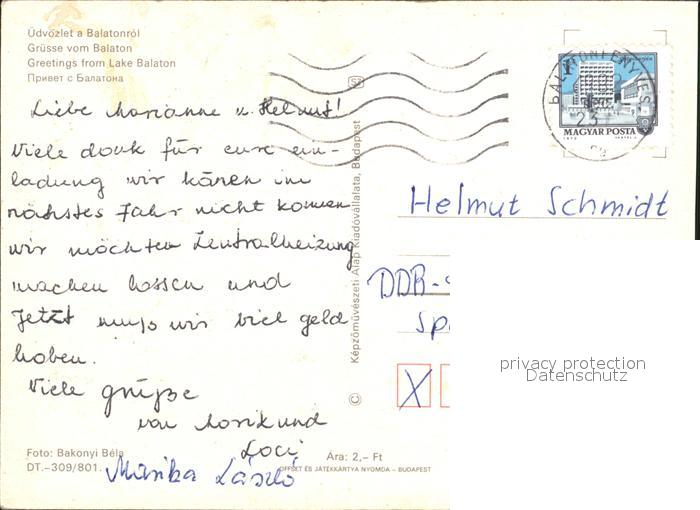 Üdvözlet a Balatonról
Grüsse vom Balaton
Greetings from Lake Balaton
Привет с Балатона
Liebe Marianne u. Helmut!
Viele dank für eure ein-
ladung wir känen im
nächstes Jahr nicht komen
wir möchten Zentralheizung
machen lassen und
Jetzt muß wir viel geld
haben.
Viele grüße
von Marik und
Loci
Marika László
Foto: Bakonyi Béla
DT.–309/801.
Ára: 2,– Ft
OFFSET ÉS JÁTÉKKÁRTYA NYOMDA – BUDAPEST
© Képzőművészeti Alap Kiadóvállalata, Budapest
SZ
1Ft
MAGYAR POSTA
23
Helmut Schmidt
DDR-
Sp
X
privacy protection
Datenschutz